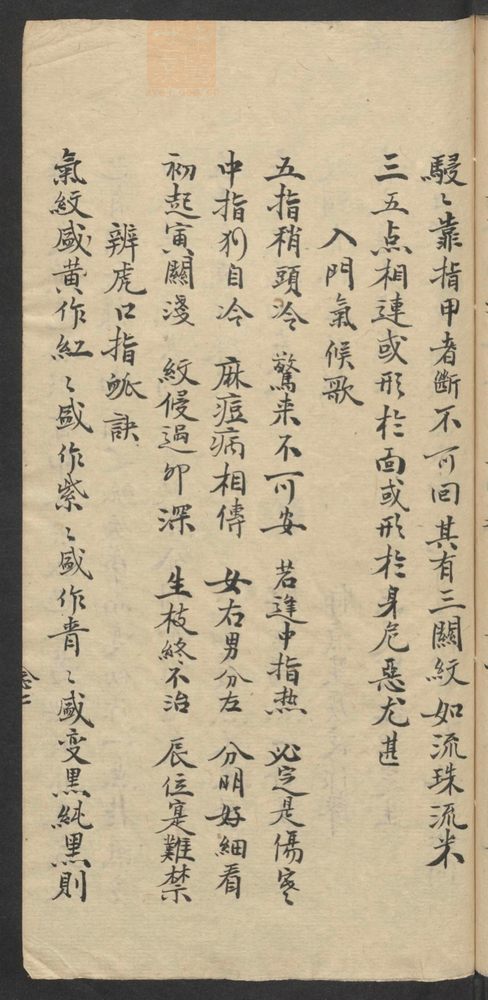 駸〻靠指甲者斷不可回其有三關紋如流珠流米
三五点相連或形於面或形於身危惡尤甚
入門氣候歌
五指稍頭冷 驚来不可安 若逢中指热 必定是傷寒
中指犳自冷 麻痘病相傳 女右男分左 分明好細看
初起寅關淺 紋侵過卯深 生枝終不治 辰位寔難禁
辨虎口指脈訣
氣紋盛黄作紅〻盛作紫〻盛作青〻盛变黒純黒則